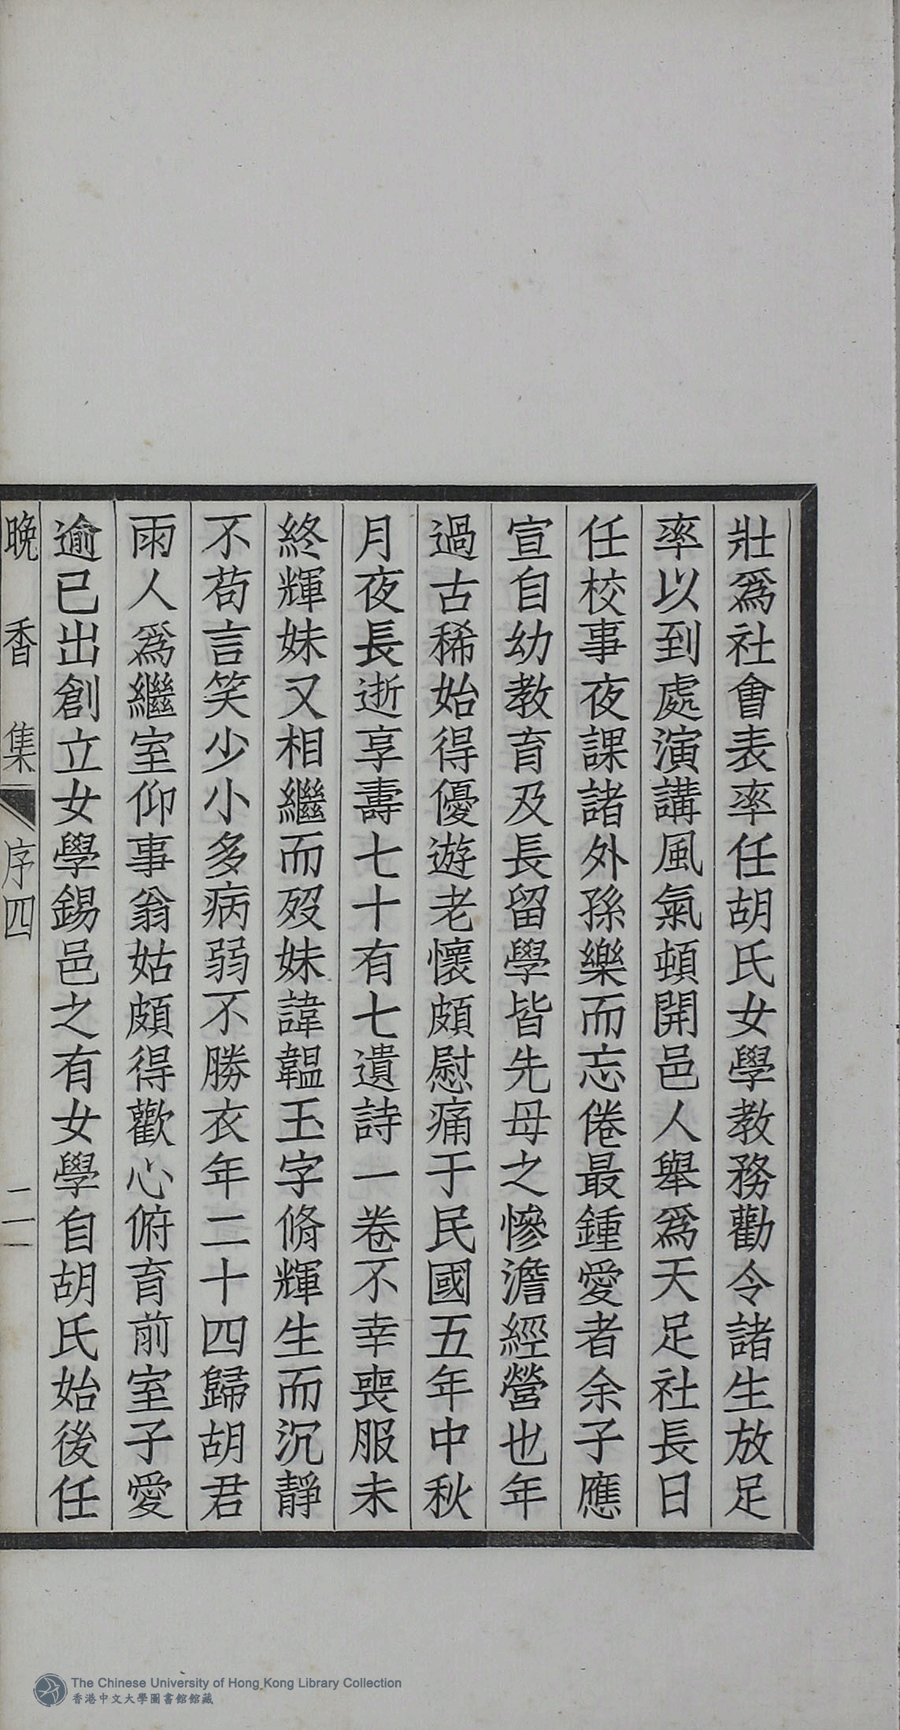 壯爲社會表率任胡氏女學教務勸令諸生放足
率以到處演講風氣頓開邑人舉爲天足社長日
任校事夜課諸外孫樂而忘倦最鍾愛者余子應
宣自幼教育及長留學皆先母之慘澹經營也年
過古稀始得優遊老懷頗慰痛于民國五年中秋
月夜長逝享壽七十有七遺詩一卷不幸喪服未
終輝妹又相繼而歿妹諱韞玉字脩輝生而沉靜
不苟言笑少小多病弱不勝衣年二十四歸胡君
雨人爲繼室仰事翁姑頗得歡心俯育前室子愛
逾已出創立女學錫邑之有女學自胡氏始後任
晚香集 序四 二
The Chinese University of Hong Kong Library Collection
香港中文大學圖書館館藏